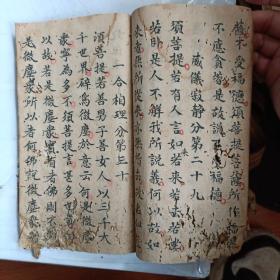 薩不受福德須菩提菩薩所作福德
不應貪著是故說不受福德
威儀寂靜分第二十九
須菩提若有人言如來若來若去若坐
若卧是人不解我所說義何以故如
來者無所從來亦無所去故名如來
一合相理分第三十
須菩提若善男子善女人以三千大
千世界碎為微塵於意云何是微塵
眾寧為多不須菩提言甚多世尊何
以故若是微塵眾實有者佛則不
是微塵眾所以者何佛說微塵眾